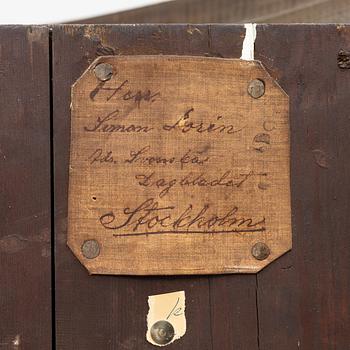 Herr
Simon Sorén
Adr. Svenska
Dagbladet
Stockholm